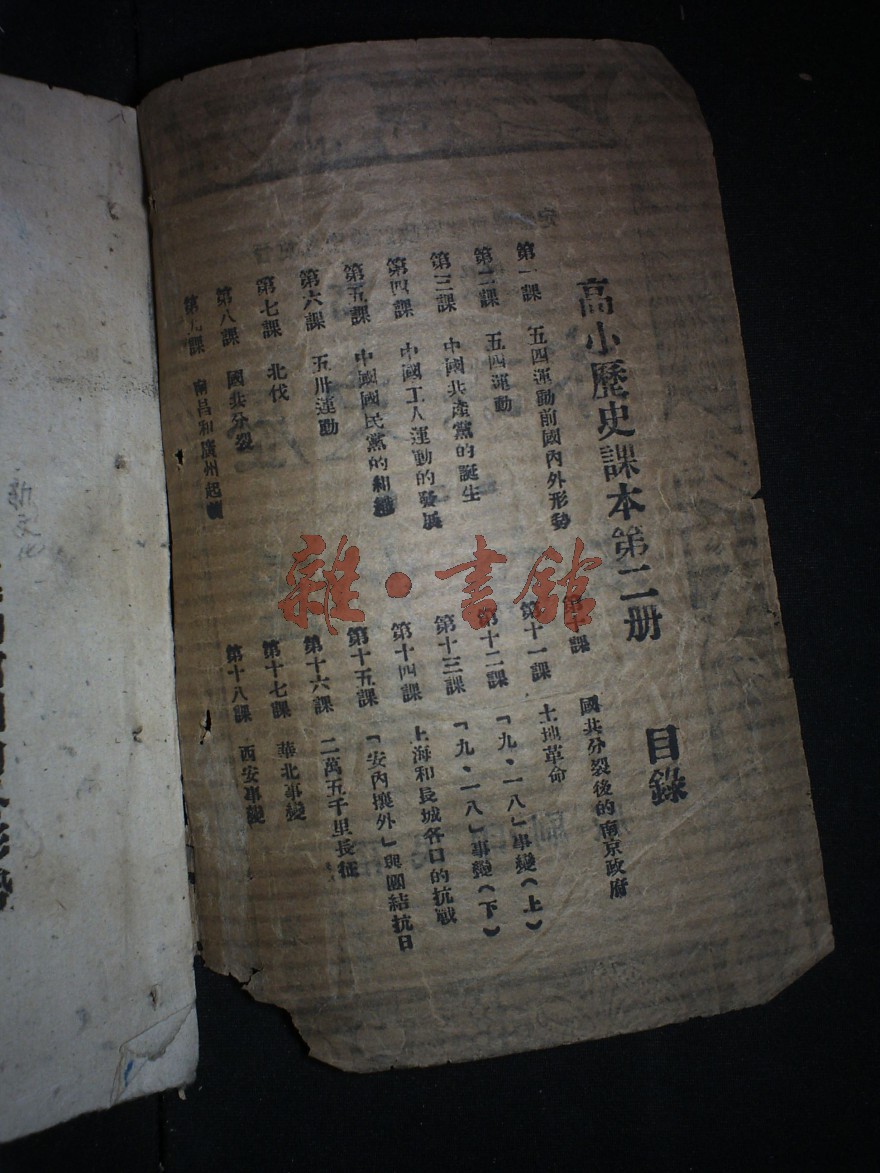 高小歷史課本第二册 目錄
第一課 五四運動前國內外形勢
第二課 五四運動
第三課 中國共產黨的誕生
第四課 中國工人運動的發展
第五課 中國國民黨的和
第六課 五卅運動
第七課 北伐
第八課 國共分裂
第九課 南昌和廣州起
第十課 國共分裂後的南京政府
第十一課 土地革命
第十二課 「九·一八」事變(上)
第十三課 「九·一八」事變(下)
第十四課 上海和長城各口的抗戰
第十五課 「安內攘外」與團結抗日
第十六課 二萬五千里長征
第十七課 華北事變
第十八課 西安事變
雜·書館